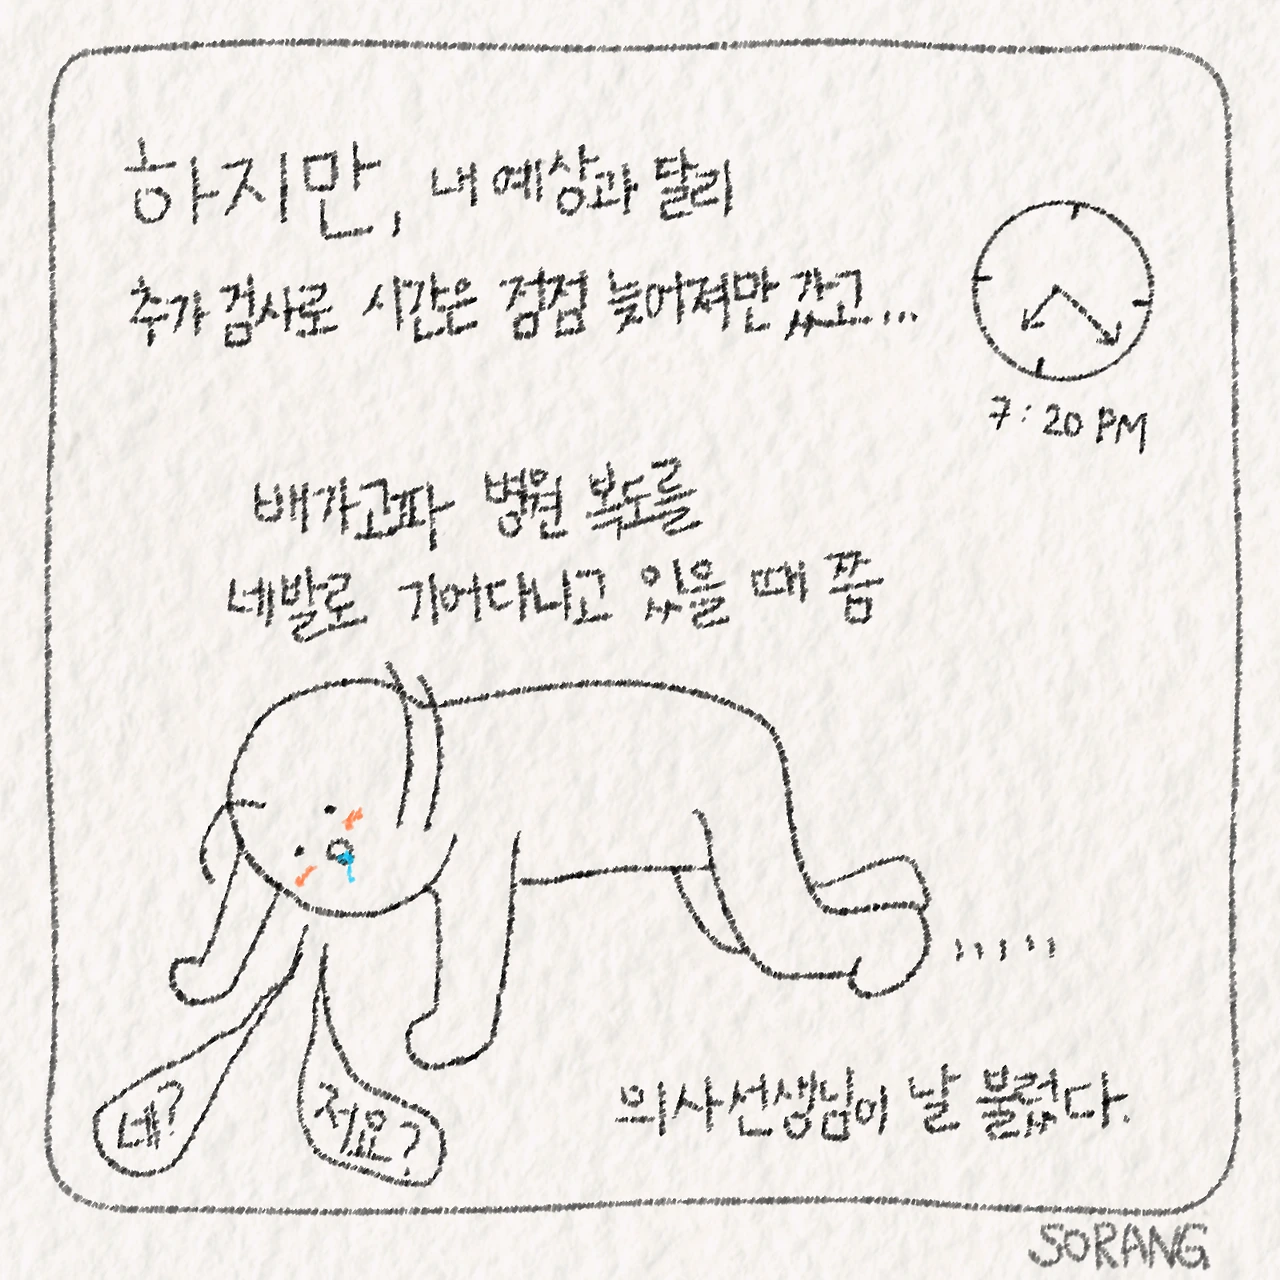 하지만, 내 예상과 달리
추가 검사로 시간은 점점 늦어져만 갔고...
7:20 PM
배가고파 병원 복도를
네발로 기어다니고 있을 때 쯤
네?
저요?
의사선생님이 날 불렀다.
SORANG